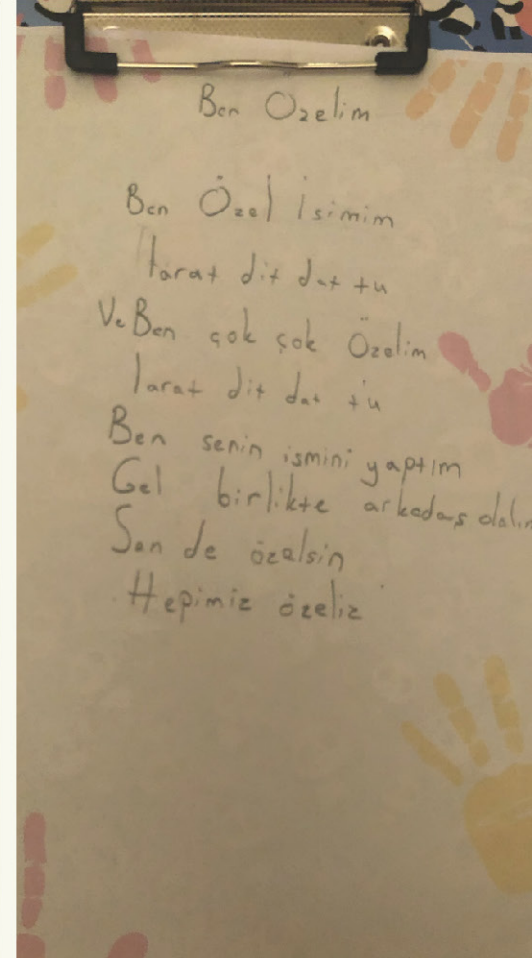 Ben Özelim
Ben Özel İsimim
tarat dit dat tu
Ve Ben çok çok Özelim
tarat dit dat tu
Ben senin ismini yaptım
Gel birlikte arkadaş olalım
Sen de özelsin
Hepimiz özeliz